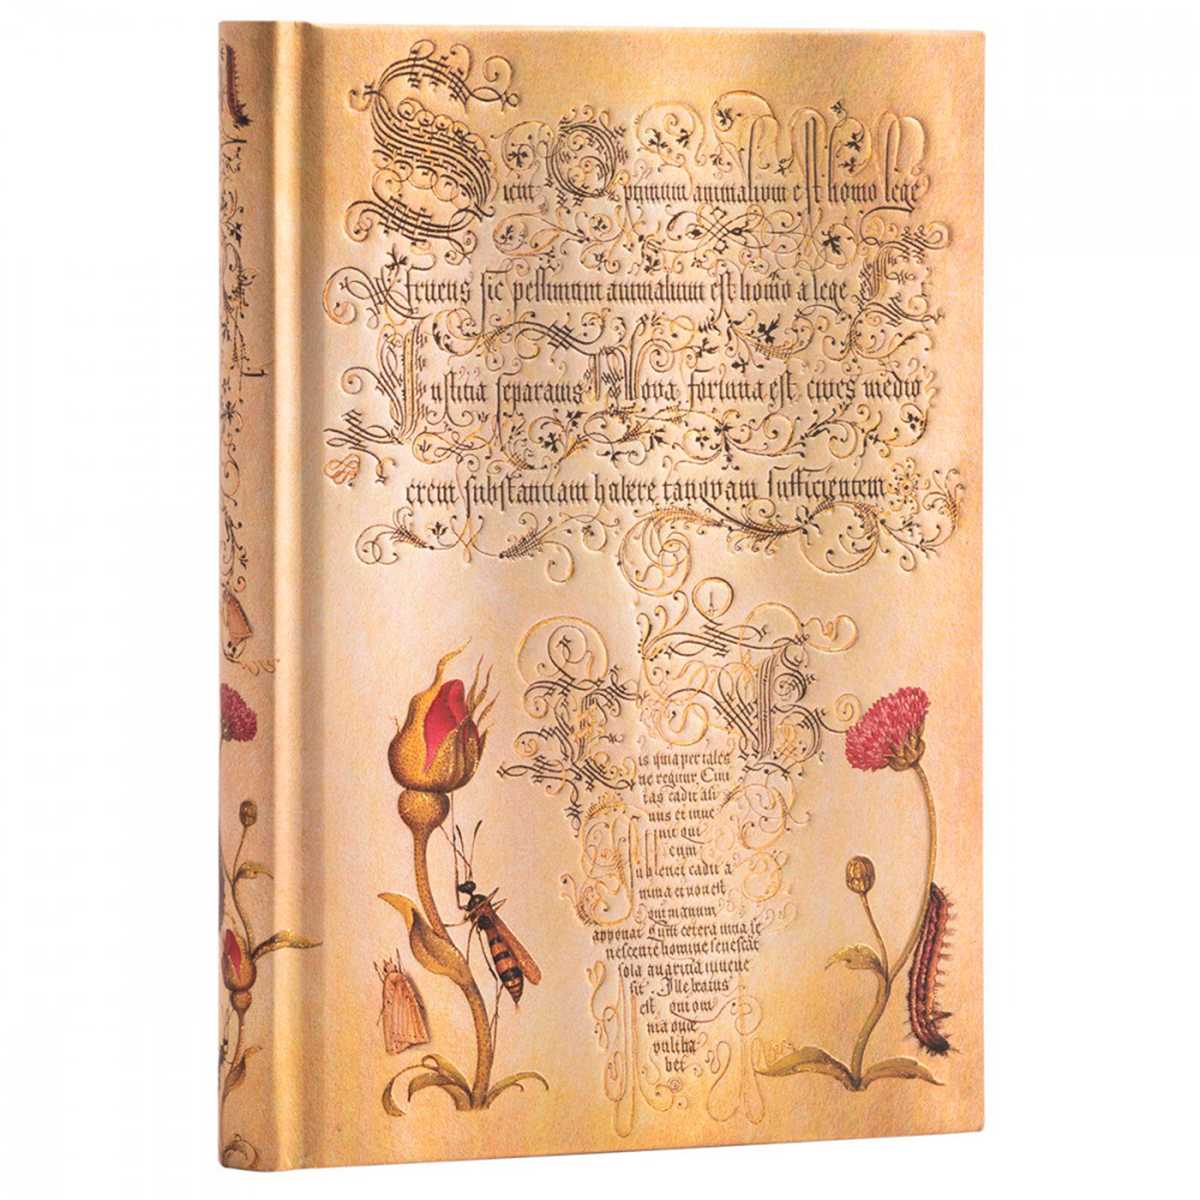 Sicut Optimum animalium est homo lege
fruens sic pessimum animalium est homo a lege
Iustitia separatus Nova fortuna est cives medio
crem substantiam habere tanquam sufficientem
is quia per tales
ne regitur Civi
tas cadit asi
nus et inve
nit qui
eum
sublevet cadit a
nima et non est
qui manum
apponat Cum cetera vitia se
nescente homine senescat
sola avaritia iuvene
sit. Ille beatus
est qui om
nia que
vult ha
bet